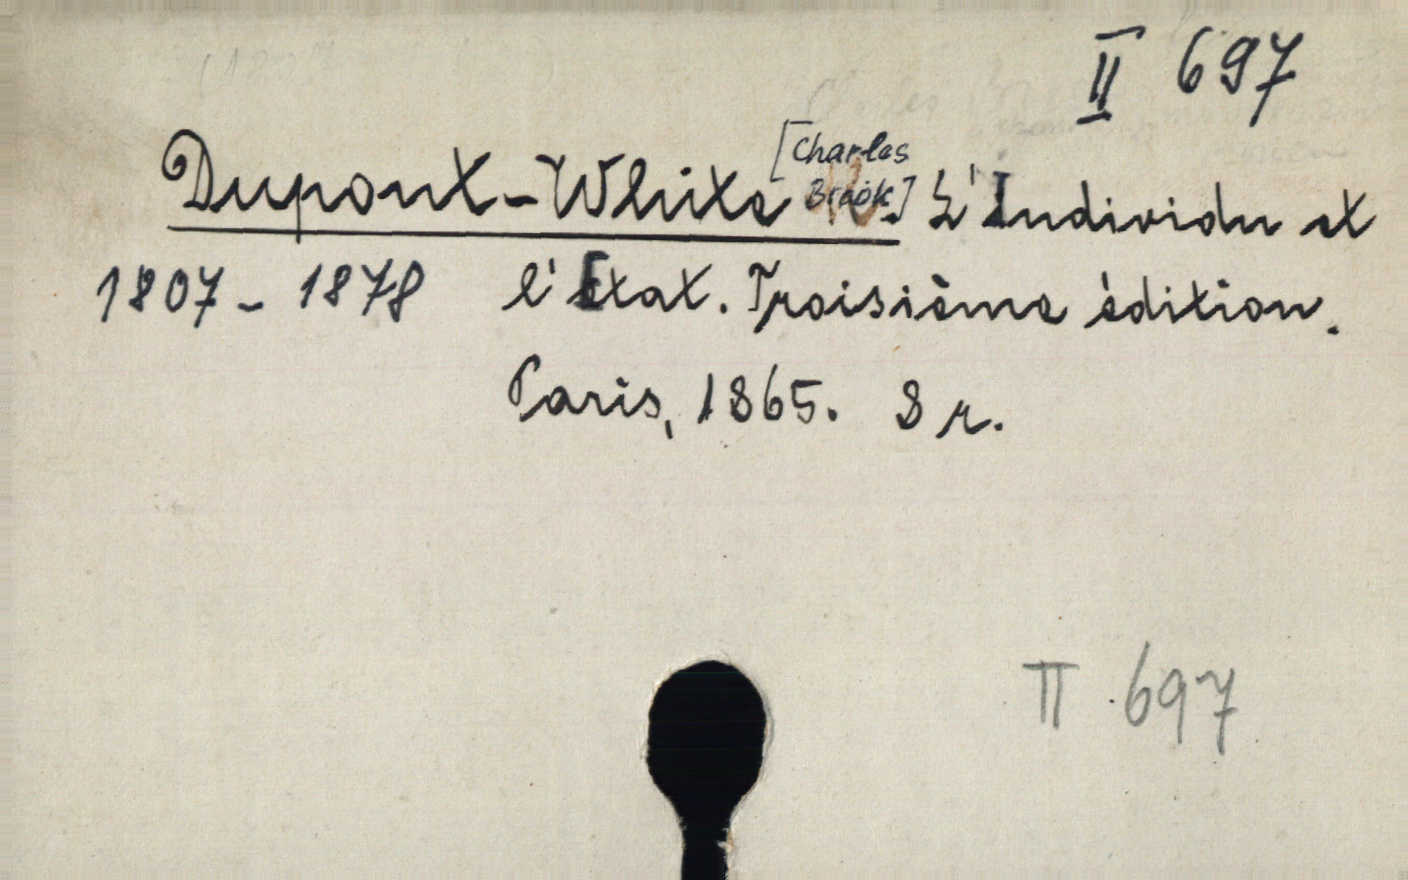 II 697
Dupont-White [Charles Brook] L'Individu et
1807-1878 l'Etat. Troisième èdition.
Paris, 1865. 8 r.
II 697